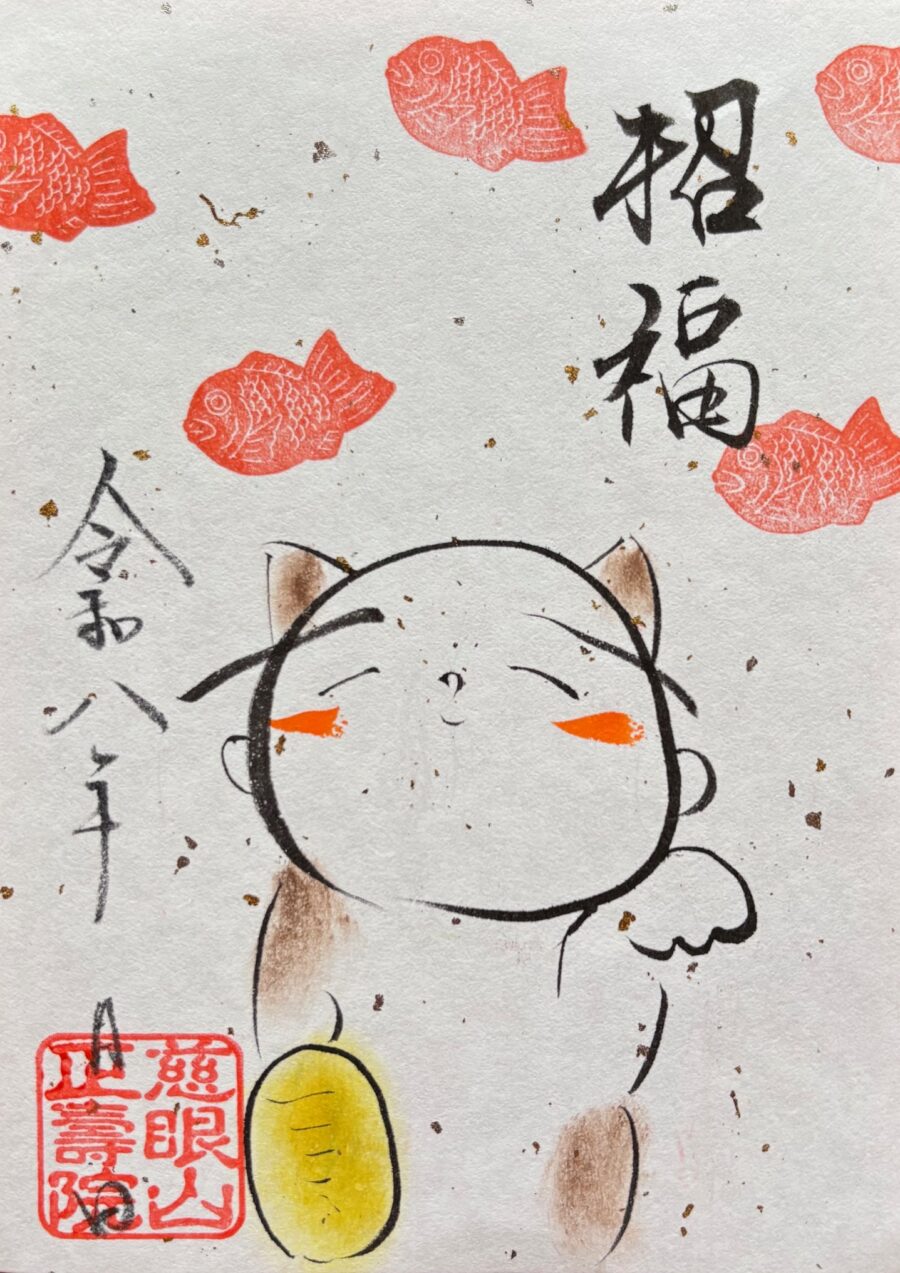 招福
令和八年
月
日
慈眼山
正壽院